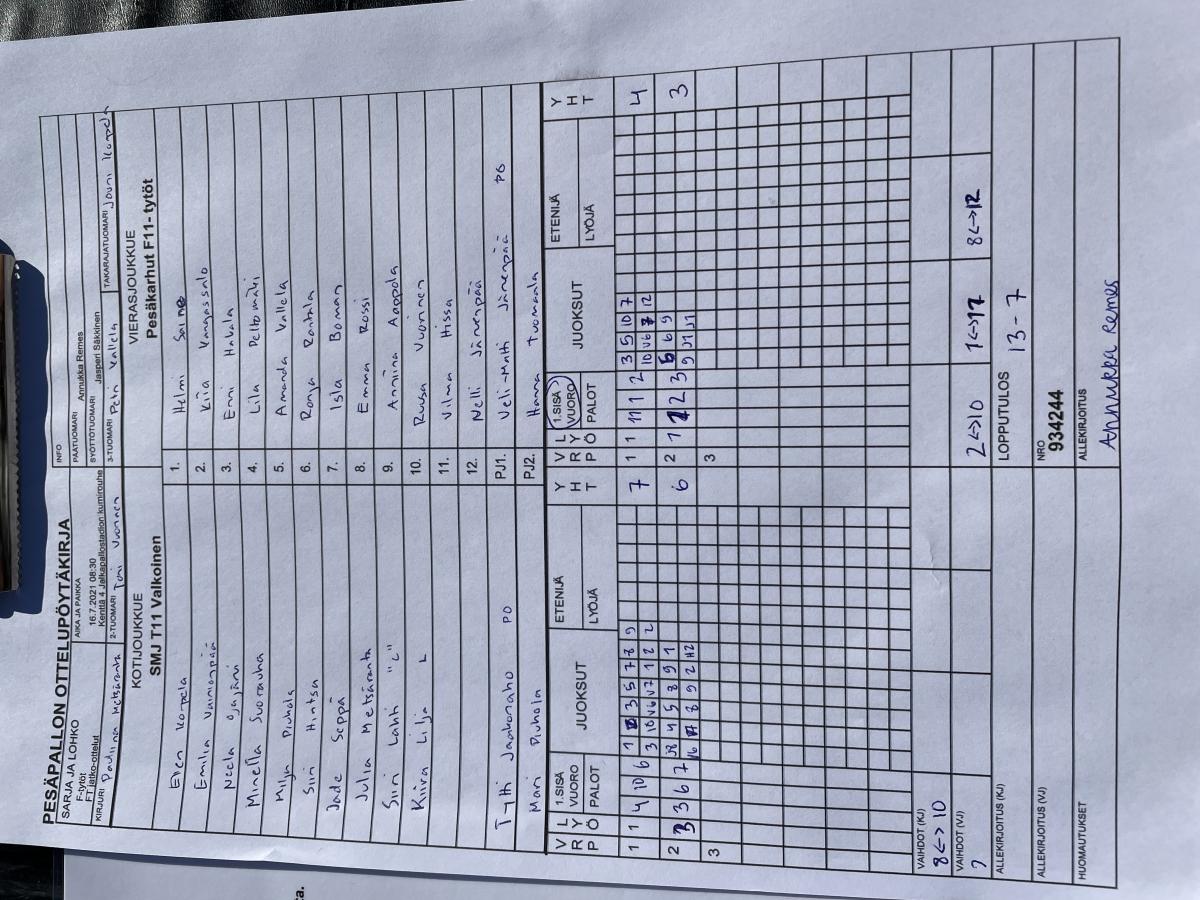 PESÄPALLON OTTELUPÖYTÄKIRJA
SARJA JA LOHKO
F-tytöt
FT jatko-ottelut
AIKA JA PAIKKA
16.7.2021 08:30
Kenttä 4 Jalkapallostadion kumirouhe
INFO
PÄÄTUOMARI Annukka Remes
SYÖTTÖTUOMARI Jasperi Säkkinen
KIRJURI Pauliina Metsäranta
2-TUOMARI Toni Vuorinen
3-TUOMARI Petri Vallela
TAKARAJATUOMARI Jouni
KOTIJOUKKUE
SMJ T11 Valkoinen
VIERASJOUKKUE
Pesäkarhut F11- tytöt
Eden Korpela 1. Helmi
Emilia Vainionpää 2. Kiia Kangassalo
Neela Ojajärvi 3. Enni Hakala
Minella Suorauha 4. Lila Peltomäki
Milja Piuhola 5. Amanda Vallela
Siiri Hintsa 6. Ronja Rantala
Jade Seppä 7. Isla Boman
Julia Metsäranta 8. Emma Rossi
Siiri Lahti "C" 9. Anniina Aappola
Kiira Lilja L 10. Ruusa Vuorinen
11. Vilma Hissa
12. Nelli Jänenpää
Tytti Jaakonaho PO PJ1. Veli-Matti Jänenpää PG
Mari Piuhola PJ2. Hanna Tuomaala
V R P L Y Ö 1.SISÄ VUORO PALOT JUOKSUT ETENIJÄ LYÖJÄ Y H T V R P L Y Ö 1.SISÄ VUORO PALOT JUOKSUT ETENIJÄ LYÖJÄ Y H T
1 1 4 10 6 7 1 1 11 1 2 3 5 10 7 4
3 10 V6 V7 1 2 2 10 V6 7 12
2 3 3 6 7 4 5 8 9 1 6 2 1 2 3 6 9 3
8 9 2 H2 9 J1 J1
3 3
VAIHDOT (KJ)
8<->10
VAIHDOT (VJ)
2 2<->10 1<->12 8<->12
ALLEKIRJOITUS (KJ)
LOPPUTULOS
13 - 7
ALLEKIRJOITUS (VJ)
NRO
934244
HUOMAUTUKSET
ALLEKIRJOITUS
Annukka Remes
ta.